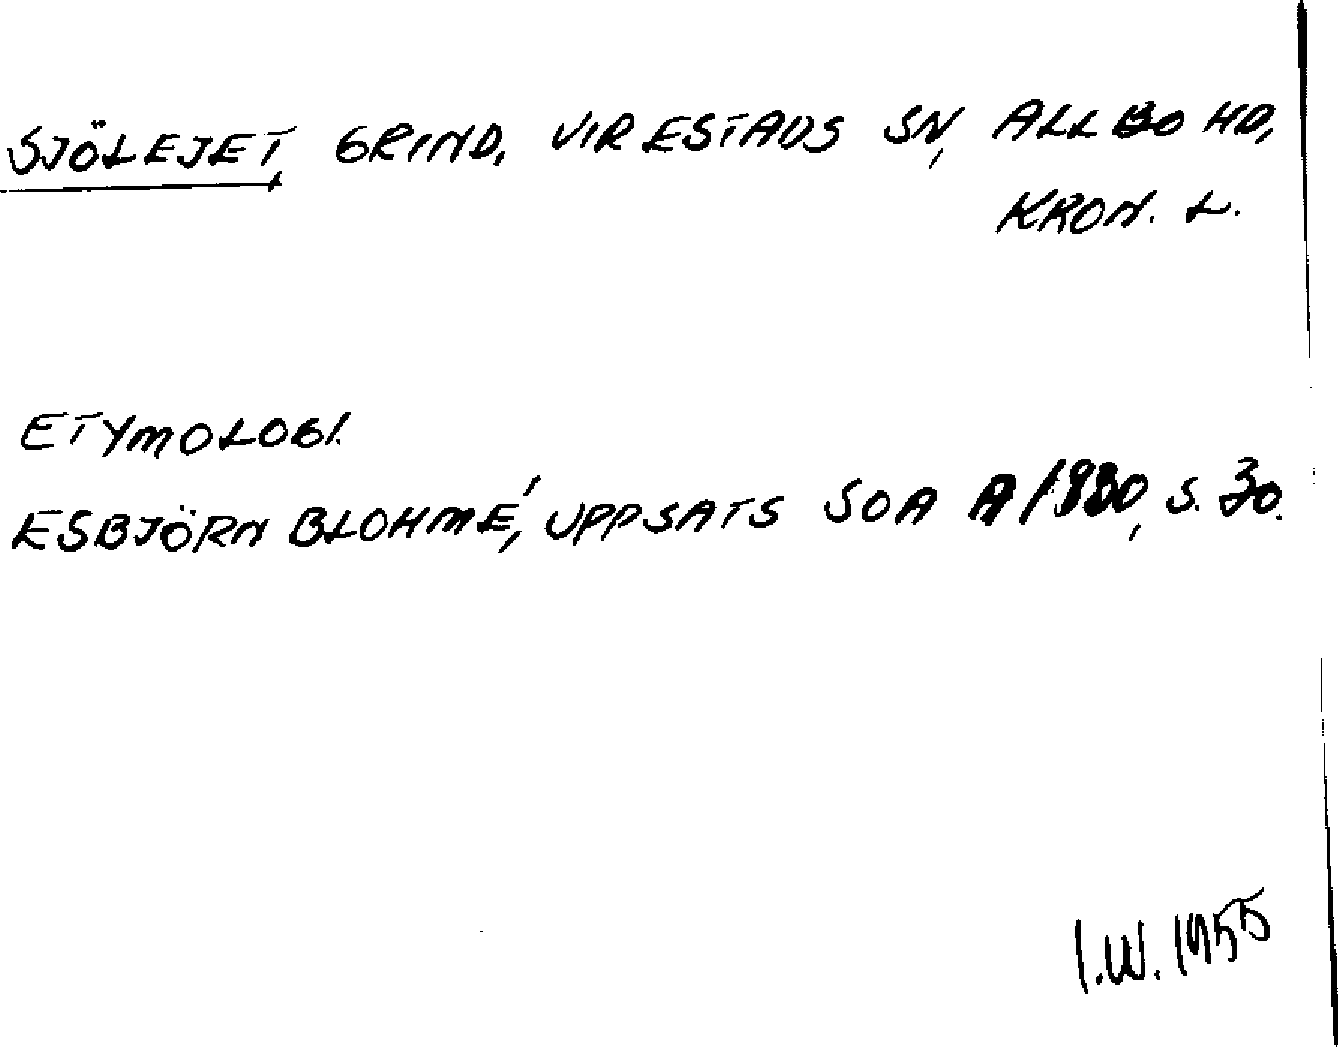 SJÖLEJET, GRIND, VIRESTADS SN, ALLBO HD,
KRON. L.
ETYMOLOGI.
ESBJÖRN BLOHMÉ, UPPSATS SOA A/1930, S. 30.
I.W. 1955